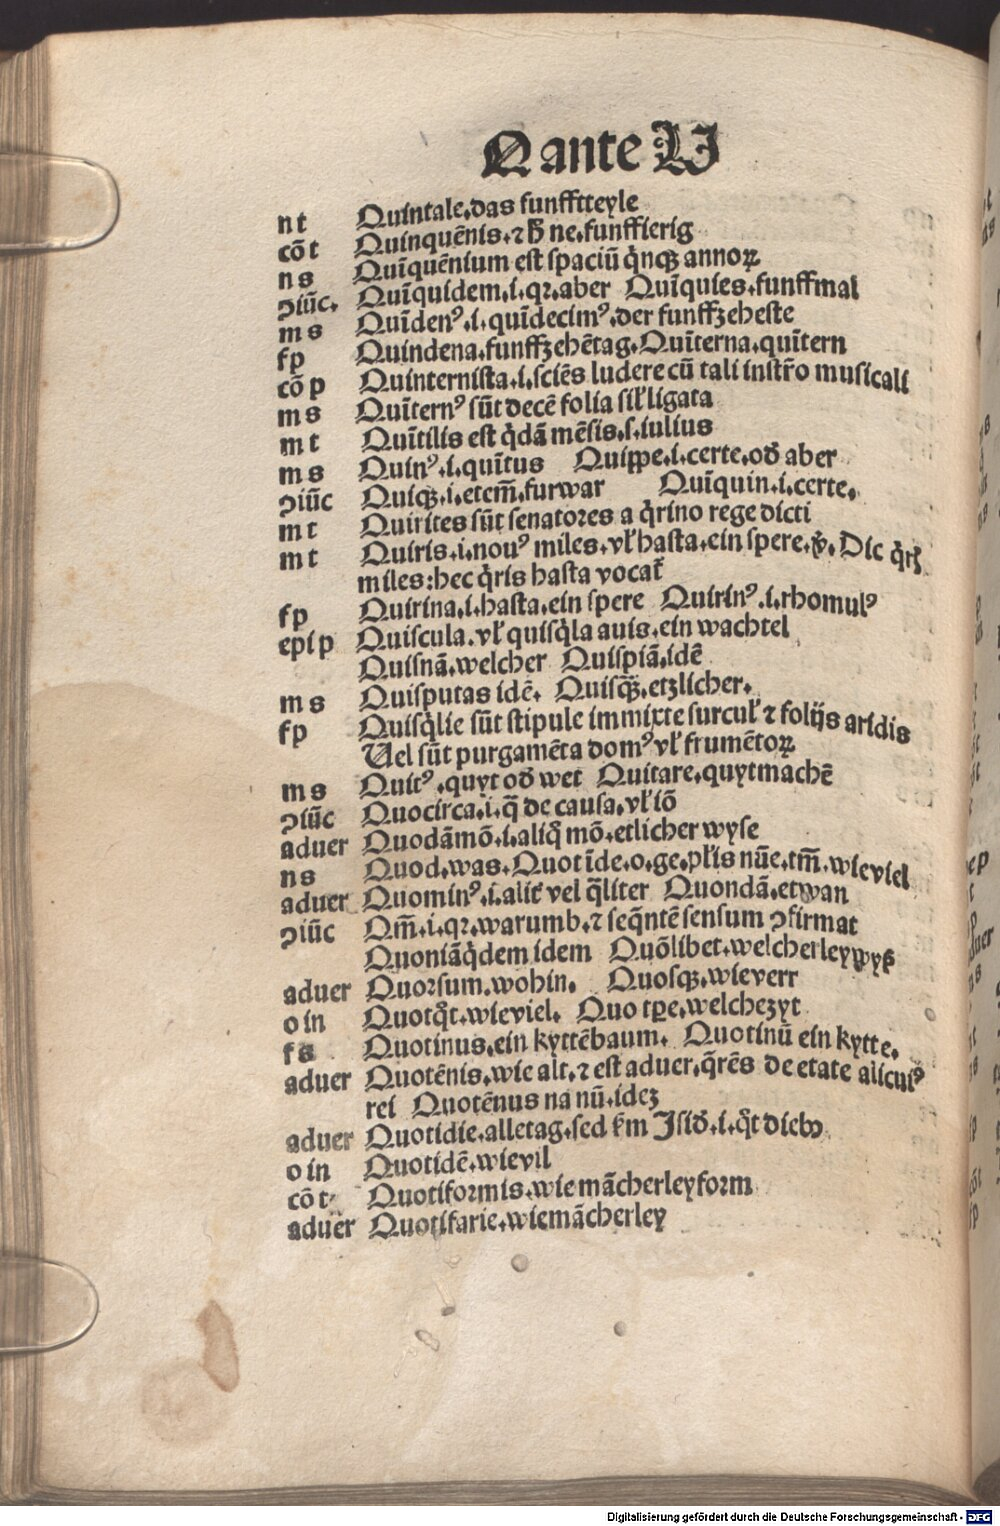 Q ante U
n t Quintale.das funfftteyle
cõ t Quinquẽnis.⁊ ħ ne.funffierig
n s Quĩquẽnium est spaciũ q̇nqꝫ annoꝝ
ꝯiũc. Quĩquidem.i.qꝛ.aber Quĩquies.funffmal
m s Quĩdenꝰ.i.quĩdecimꝰ.der funffzeheste
f p Quindena.funffzehẽtag.Quĩterna.quĩtern
cõ p Quinternista.i.sciẽs ludere cũ tali instr̃o musicali
m s Quĩternꝰ sũt decẽ folia sil̃ ligata
m t Quĩtilis est q̇dã mẽsis.s.iulius
m s Quinꝰ.i.quĩtus Quippe.i.certe.oď aber
ꝯiũc Quiqꝫ.i.etem̃.furwar Quĩquin.i.certe.
m t Quirites sũt senatoꝛes a q̇rino rege dicti
m t Quiris.i.nouꝰ miles.vł hasta.ein spere.v̾. Dic q̇rꝭ
miles:hec q̇ris hasta vocat̃
f p Quirina.i.hasta.ein spere Quirinꝰ.i.rhomulꝰ
epi p Quiscula.vł quisq̇la auis.ein wachtel
Quisnã.welcher Quispiã.idẽ
m s Quisputas idẽ. Quisqꝫ.etzlicher.
f p Quisq̇lie sũt stipule immixte surcuł ⁊ folijs aridis
Uel sũt purgamẽta domꝰ vł frumẽtoꝝ
m s Quitꝰ.quyt oď wet Quitare.quytmachẽ
ꝯiũc Quocirca.i.q̃ de causa.vł iõ
aduer Quodãmõ.i.aliq̊ mõ.etlicher wyse
n s Quod.was.Quot ĩde.o.ge.płis nũe.tm̃.wieviel
aduer Quominꝰ.i.alit̃ vel q̃liter Quondã.etwan
ꝯiũc Qm̃.i.qꝛ.warumb.⁊ seq̃ntẽ sensum ꝯfirmat
Quoniãq̇dem idem Quõlibet.welcherleywyß
aduer Quoꝛsum.wohin. Quosqꝫ.wieverr
o in Quotq̊t.wieviel. Quo tꝑe.welchezyt
f s Quotinus.ein kyttẽbaum. Quotinũ ein kytte.
aduer Quotẽnis.wie alt.⁊ est aduer.q̃rẽs de etate alicuiꝰ
rei Quotẽnus na nũ.ideꝫ
aduer Quotidie.alletag.sed km̃ Isiď.i.q̊t diebꝰ
o in Quotidẽ.wievil
cõ t Quotiformis.wie mãcherleyform
aduer Quotifarie.wiemãcherley
Digitalisierung gefördert durch die Deutsche Forschungsgemeinschaft - DFG